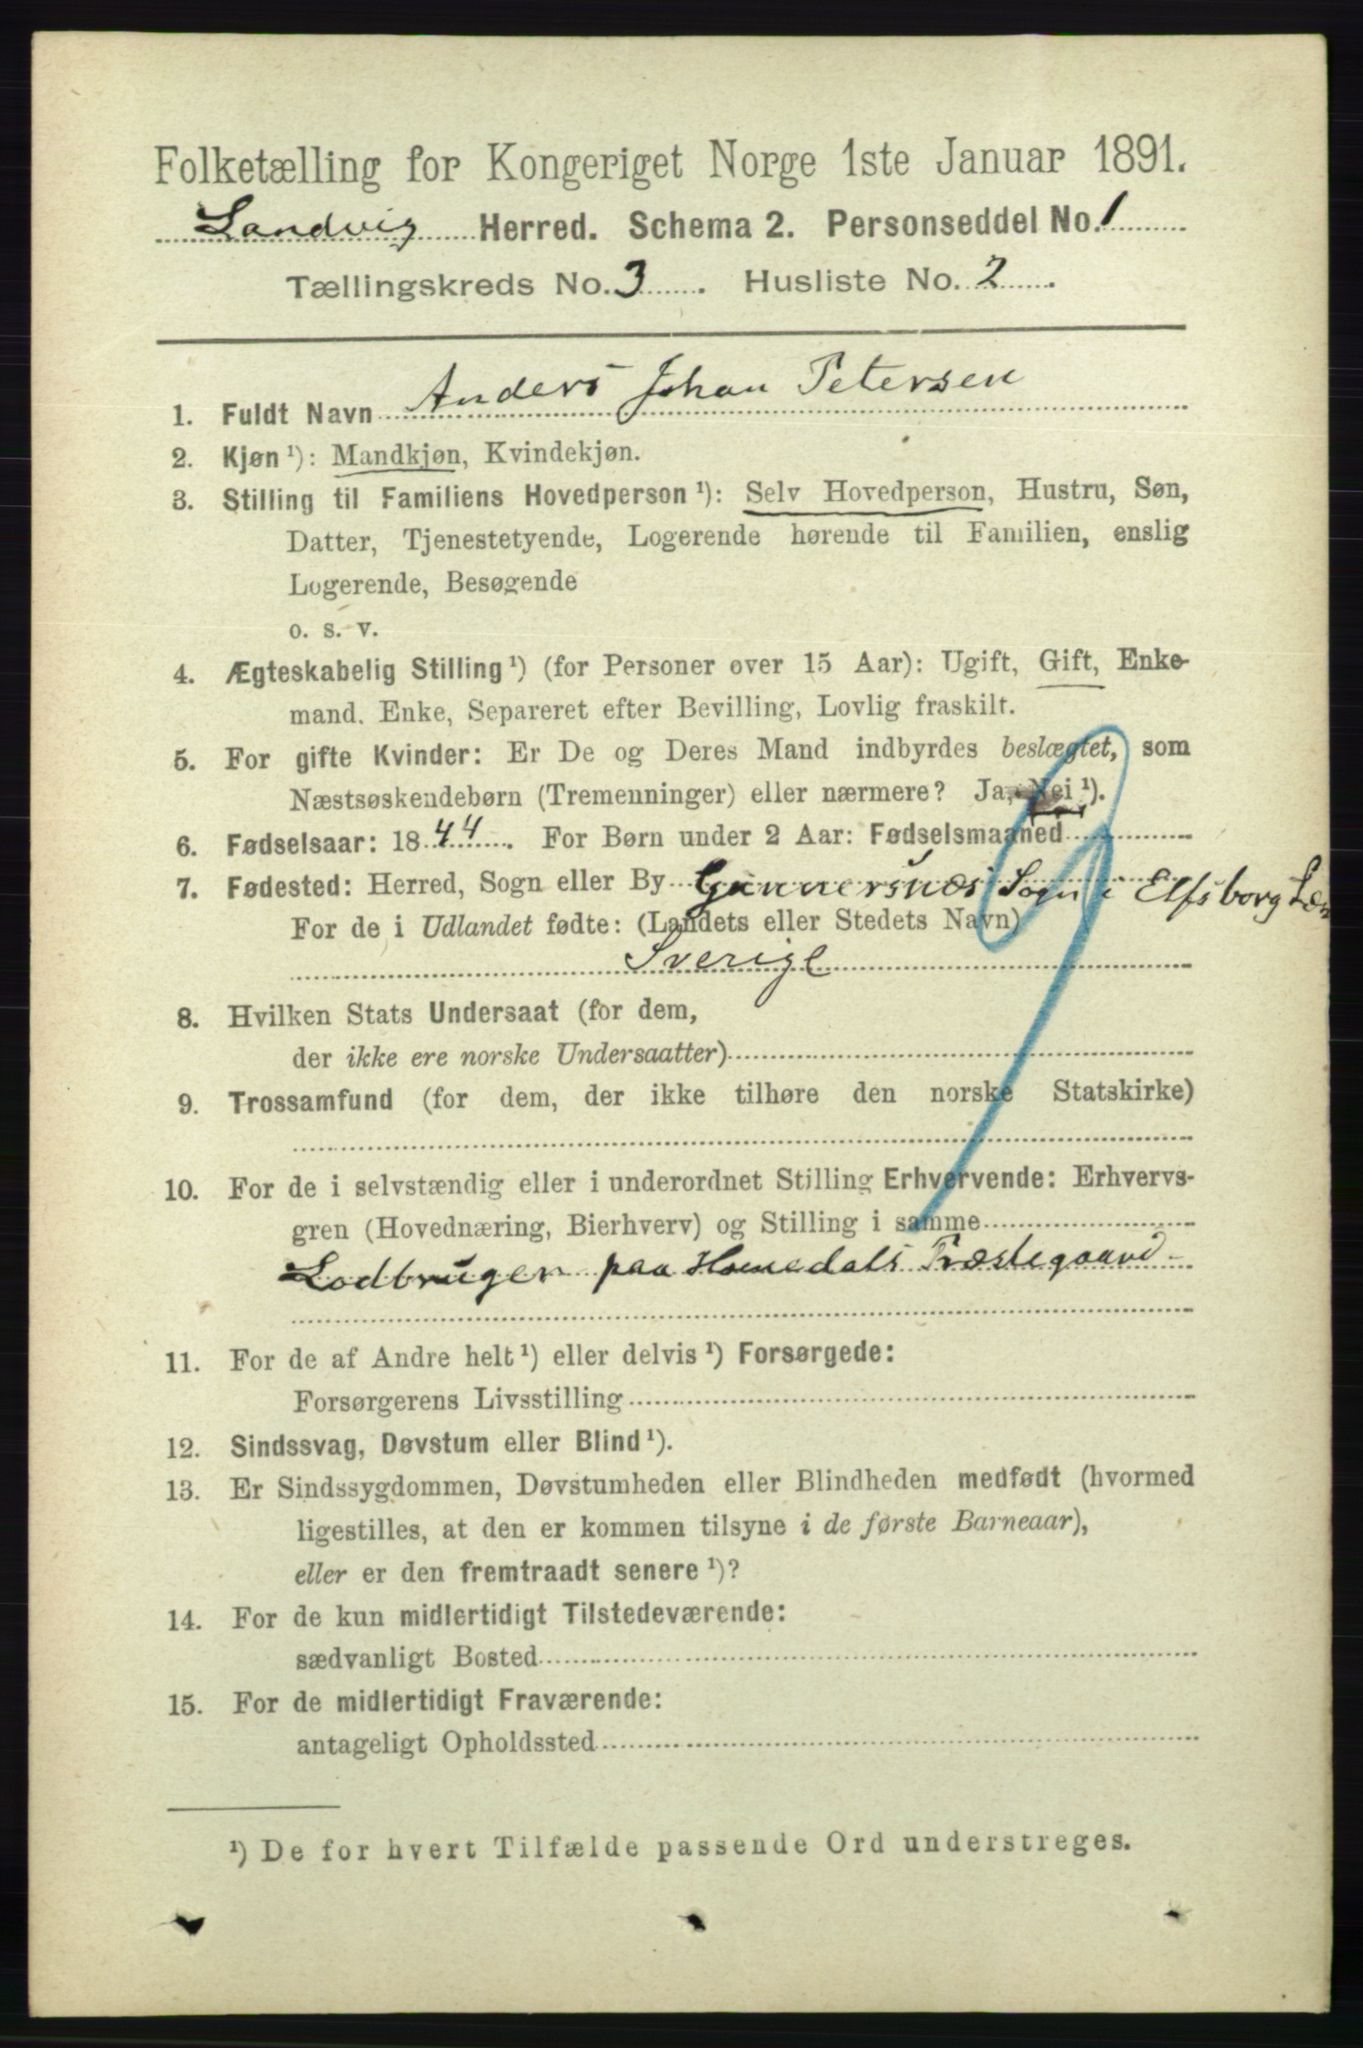 Folketælling for Kongeriget Norge 1ste Januar 1891.
Landvig Herred. Schema 2. Personseddel No. 1
Tællingskreds No. 3. Husliste No. 2.
1. Fuldt Navn Anders Johan Petersen
2. Kjøn ¹): Mandkjøn, Kvindekjøn.
3. Stilling til Familiens Hovedperson ¹): Selv Hovedperson, Hustru, Søn,
Datter, Tjenestetyende, Logerende hørende til Familien, enslig
Logerende, Besøgende
o. s. v.
4. Ægteskabelig Stilling ¹) (for Personer over 15 Aar): Ugift, Gift, Enke-
mand, Enke, Separeret efter Bevilling, Lovlig fraskilt.
5. For gifte Kvinder: Er De og Deres Mand indbyrdes beslægtet, som
Næstsøskendebørn (Tremenninger) eller nærmere? Ja, Nei ¹).
6. Fødselsaar: 1844. For Børn under 2 Aar: Fødselsmaaned
7. Fødested: Herred, Sogn eller By Gunnersnæs Sogn i Elfsborg Læn
For de i Udlandet fødte: (Landets eller Stedets Navn)
Sverige
8. Hvilken Stats Undersaat (for dem,
der ikke ere norske Undersaatter)
9. Trossamfund (for dem, der ikke tilhøre den norske Statskirke)
10. For de i selvstændig eller i underordnet Stilling Erhvervende: Erhvervs-
gren (Hovednæring, Bierhverv) og Stilling i samme
Lodbruger paa Homedals Præstegaard
11. For de af Andre helt ¹) eller delvis ¹) Forsørgede:
Forsørgerens Livsstilling
12. Sindssvag, Døvstum eller Blind ¹).
13. Er Sindssygdommen, Døvstumheden eller Blindheden medfødt (hvormed
ligestilles, at den er kommen tilsyne i de første Barneaar),
eller er den fremtraadt senere ¹)?
14. For de kun midlertidigt Tilstedeværende:
sædvanligt Bosted
15. For de midlertidigt Fraværende:
antageligt Opholdssted
¹) De for hvert Tilfælde passende Ord understreges.